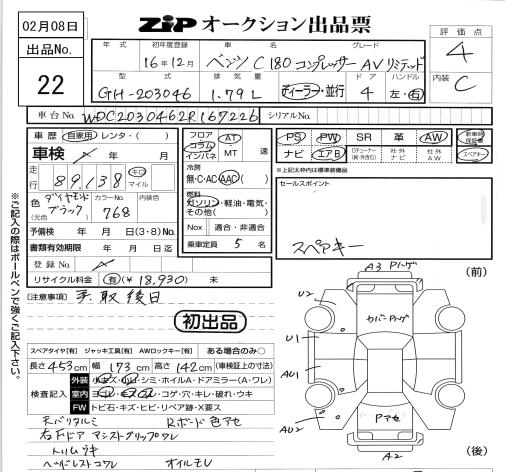 02月08日
ZiPオークション出品票
出品No.
22
年式
初年度登録
車名
グレード
評価点
16年12月
ベンツ C180 コンプレッサー AVリミテッド
4
型式
排気量
ディーラー・並行
ドア
ハンドル
内装
GH-203046
1.79L
4
左・右
C
車台No.
WDC2030462R167226
シリアルNo.
車歴 自家用・レンタ・( )
フロア コラム インパネ
AT MT 速
PS PW SR 革 AW 新車時保証書
ナビ エアB Dチューナー(純・外含む) 社外ナビ 社外AW スペアキー
※上記太枠内は標準装備品
車検 年 月
冷房
無・C・AC・AAC( )
走行 89,138 キロ マイル
燃料
ガソリン・軽油・電気・その他( )
色(元色) ダイヤモンドブラック
カラーNo. 768
内装色
Nox 適合・非適合
乗車定員 5 名
予備検 年 月 日(3・8)No.
書類有効期限 年 月 日迄
登録No.
リサイクル料金 (有)(¥18,930) 未
セールスポイント
スペアキー
[注意事項] 手取後日
初出品
※ご記入の際はボールペンで強くご記入下さい。
スペアタイヤ[有] ジャッキ工具[有] AWロックキー[有] ある場合のみ○
長さ453cm 幅173cm 高さ142cm (車検証上の寸法)
検査記入
外装 小キズ・小凹・シミ・ホイルA・ドアミラー(A・ワレ)
室内 ヨゴレ・キズ・スレ・コゲ・穴・キレ・破れ・ウキ
FW トビ石・キズ・ヒビ・リペア跡・X要ス
天バリタルミ Rボード色アセ
右Fドア アシストグリップワレ
トリムウキ
ヘッドレストコワレ オイルモレ
(前)
A3
U2
カバー
U1
AU1
AU2
Pアセ
A2
(後)